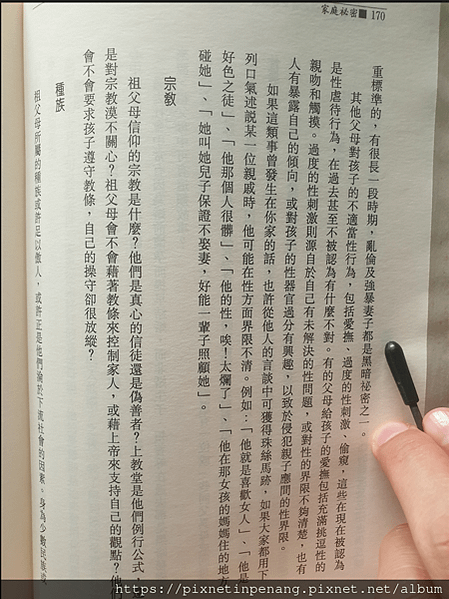 家庭祕密■ 170
重標準的，有很長一段時期，亂倫及強暴妻子都是黑暗祕密之一。
其他父母對孩子的不適當性行為，包括愛撫、過度的性刺激、偷窺，這些在現在被認為
是性虐待行為，在過去甚至不被認為有什麼不對。有的父母給孩子的愛撫包括充滿挑逗性的
親吻和觸摸。過度的性刺激則源自於自己有未解決的性問題，或對性的界限不夠清楚，也有
人有暴露自己的傾向，或對孩子的性器官過分有興趣，以致於侵犯親子應間的性界限。
如果這類事曾發生在你家的話，也許從他人的言談中可獲得珠絲馬跡，如果大家都用下
列口氣述說某一位親戚時，他可能在性方面界限不清。例如：「他就是喜歡女人」、「他是
好色之徒」、「他那個人很髒」、「他的性，唉！太爛了」、「他在那女孩的媽媽住的地方
碰她」、「她叫她兒子保證不娶妻，好能一輩子照顧她」。
宗教
祖父母信仰的宗教是什麼？他們是真心的信徒還是偽善者？上教堂是他們例行公式，
是對宗教漠不關心？祖父母會不會藉著教條來控制家人，或藉上帝來支持自己的觀點？他們
會不會要求孩子遵守教條，自己的操守卻很放縱？
種族
祖父母所屬的種族或許足以傲人，或許正是他們偏於下流社會的因素。身為少數民族
https://pixnetinpenang.pixnet.net/album